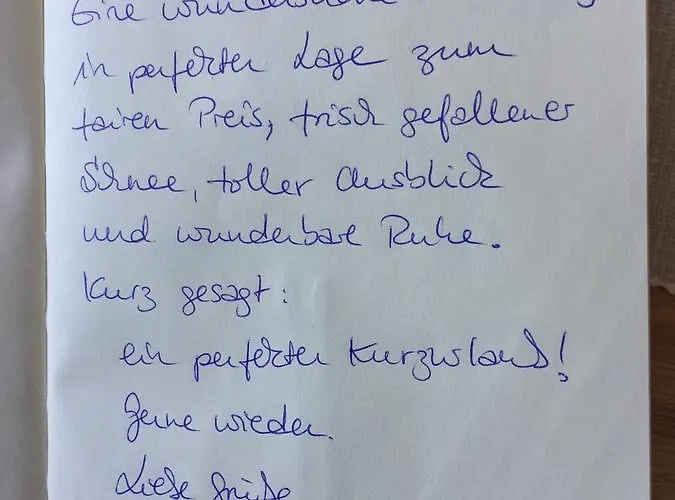 Eine
in perfekter Lage zum
fairen Preis, frisch gefallener
Schnee, toller Ausblick
und wunderbare Ruhe.
Kurz gesagt:
ein perfekter Kurzurlaub!
Gerne wieder.
Liebe Grüße